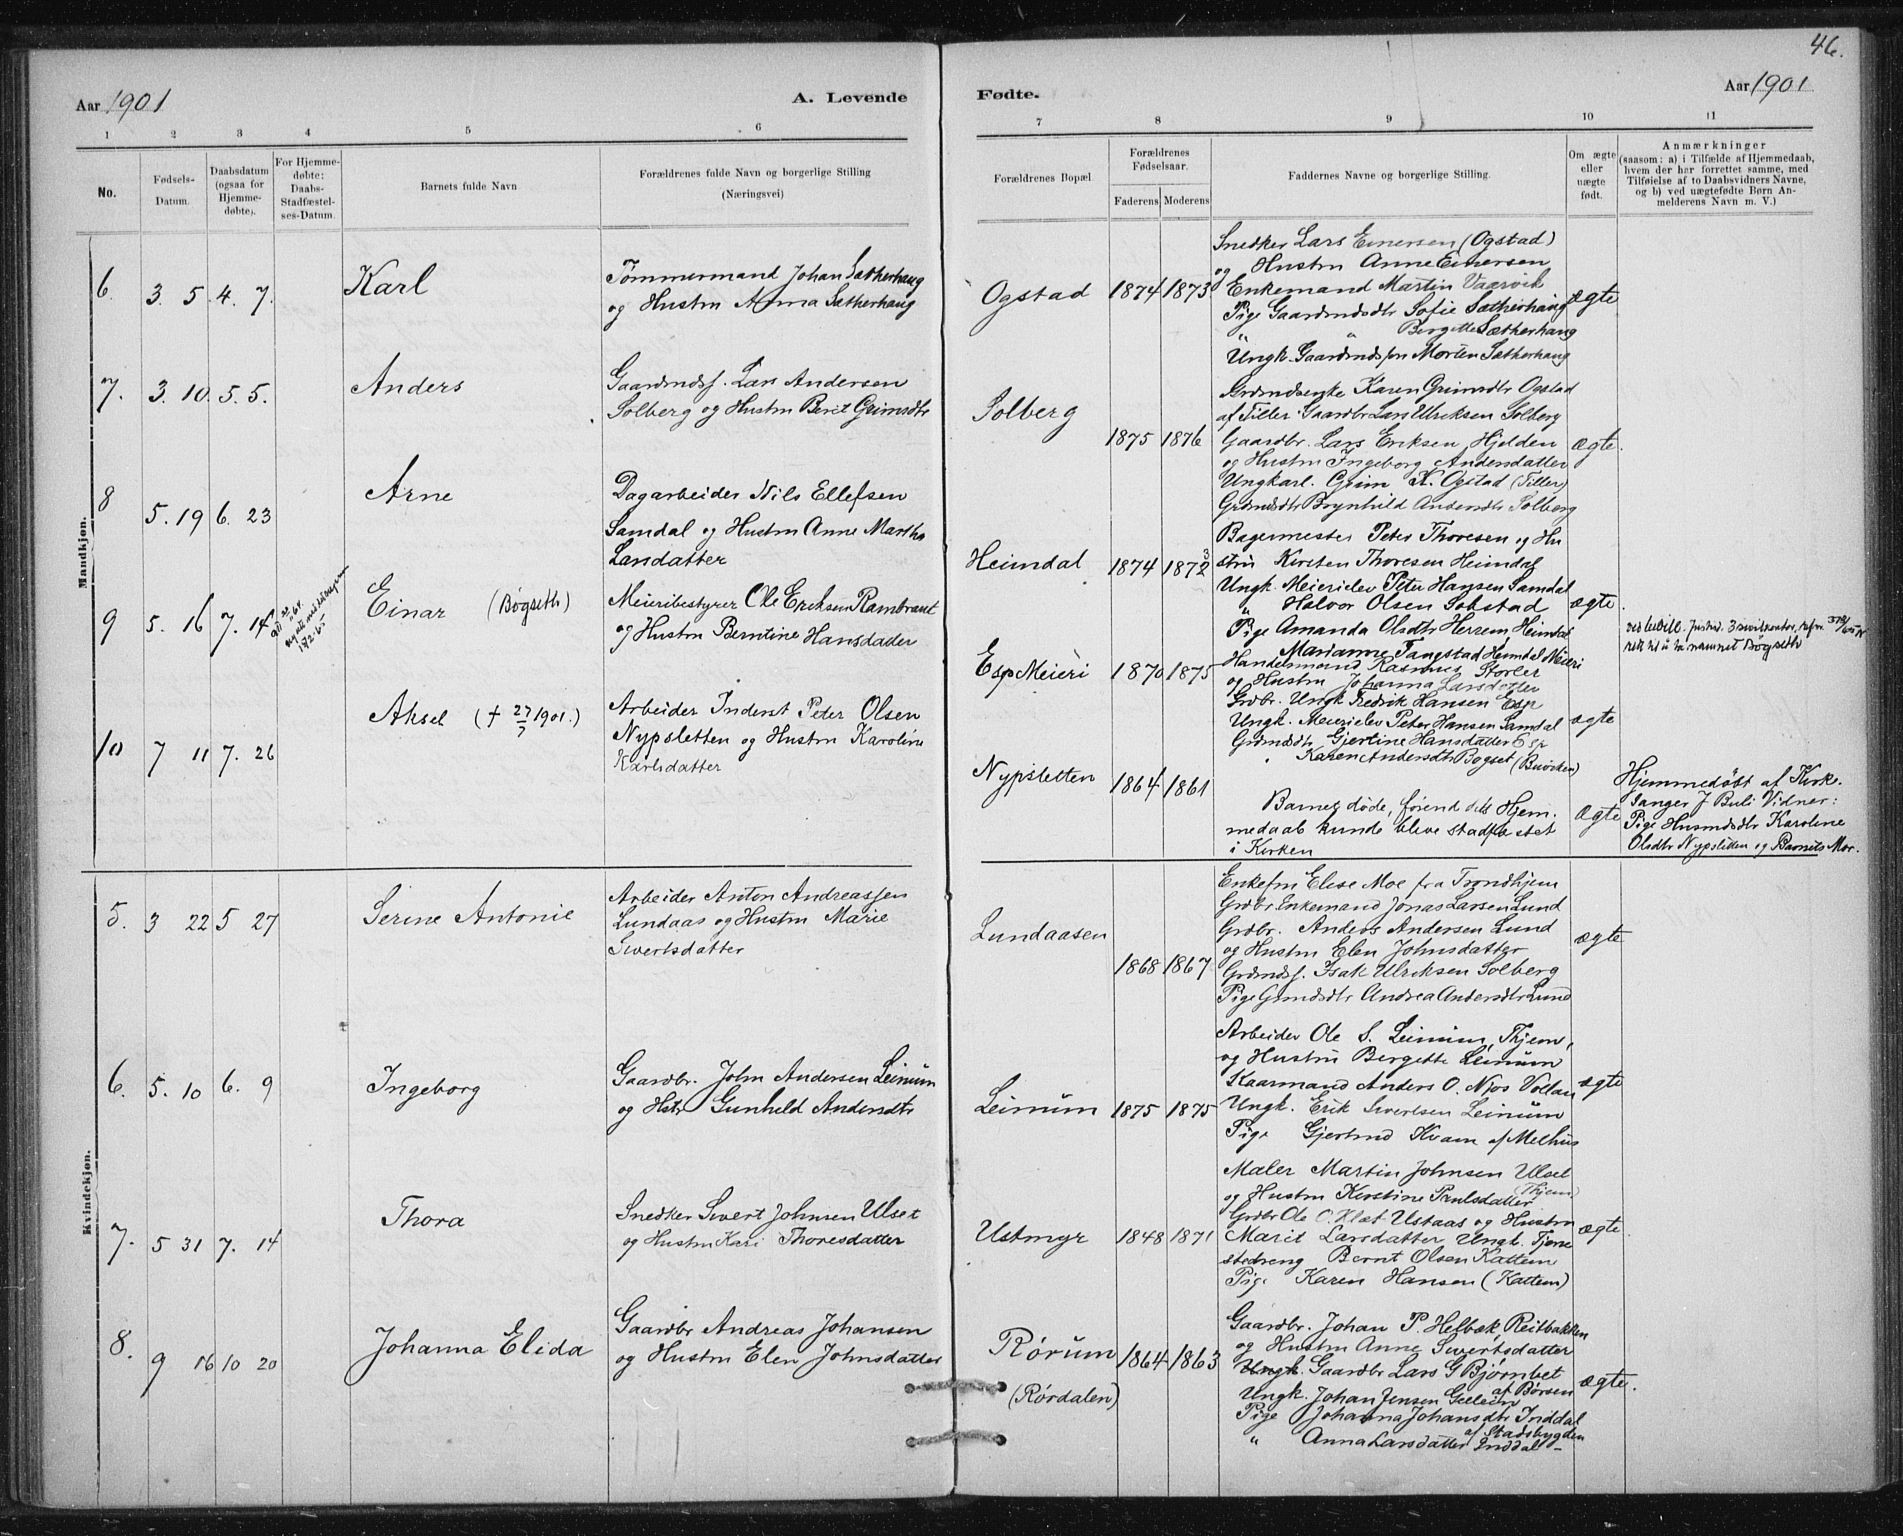 46.
Aar 1901
A. Levende
Fødte.
Aar 1901
1 2 3 4 5 6 7 8 9 10 11
No.
Fødsels-
Datum.
Daabsdatum
(ogsaa for
Hjemme-
døbte).
For Hjemme-
døbte:
Daabs-
Stadfæstel-
ses-Datum.
Barnets fulde Navn
Forældrenes fulde Navn og borgerlige Stilling
(Næringsvei)
Forældrenes Bopæl.
Forældrenes
Fødselsaar.
Faderens Moderens
Faddernes Navne og borgerlige Stilling.
Om ægte
eller
uægte
født.
Anmærkninger
(saasom: a) i Tilfælde af Hjemmedaab,
hvem der har forrettet samme, med
Tilføielse af to Daabsvidners Navne,
og b) ved uægtefødte Børn An-
melderens Navn m. V.)
Mandkjøn.
6. 3. 5. 4. 7. Karl
Tømmermand Johan Sætherhaug
og Hustru Anna Sætherhaug
Ogstad 1874 1873
Snedker Lars Einersen (Ogstad)
og Hustru Anne Einersen
Enkemand Martin Vaarvik
Pige Gaardmdsdtr Sofie Sætherhaug
" " Bergitte Sætherhaug
Ungk. Gaardmdssøn Morten Sætherhaug
ægte
7. 3. 10. 5. 5. Anders
Gaardmdss. Lars Andersen
Solberg og Hustru Berit Grimsdtr
Solberg 1875 1876
Grdmdsenke Karen Grimsdtr Ogstad
af Tiller Gaardbr Lars Ulriksen Solberg
Gaardbr. Lars Eriksen Hjelden
og Hustru Ingeborg Andersdatter
Ungkarl. Grim K. Ogstad (Tiller)
Grdmdsdtr Brynhild Andersdtr Solberg
ægte.
8 5. 19 6. 23 Arne
Dagarbeider Nils Ellefsen
Samdal og Hustru Anne Martha
Larsdatter
Heimdal 1874 1872 3
Bagermester Peter Thoresen og Hu
stru Kirsten Thoresen Heimdal
Ungk. Meierielev Peter Hansen Samdal
" Halvor Olsen Sobstad
Pige Amanda Olsdtr Herrem Heimdal
Marianne Tangstad Heimdal Meieri
ægte.
9 5. 16 7. 14 Einar (Bøgseth)
Meieribestyrer Ole Eriksen Rambraut
og Hustru Berntine Hansdatter
Esp Meieri 1870 1875
Handelsmand Rasmus Storler
og Hustru Johanna Larsdatter
Grdbr. Ungk Fredrik Hansen Esp
Ungk. Meierielev Peter Hansen Samdal
Grdmdsdtr Gjertine Hansdatter Esp
" Karen Andersdtr Bogset (Buviken)
ægte
rett til å ta navnet Bøgseth
10 7 11 7. 26 Aksel († 27/7 1901.)
Arbeider Inderst Peter Olsen
Nypsletten og Hustru Karoline
Karlsdatter
Nypsletten 1864 1861
Barnet døde, førend dets Hjem-
medaab kunde blive stadfæstet
i Kirken
ægte
Hjemmedøbt af Kirke-
sanger J Buli Vidner:
Pige Husmdsdtr Karoline
Olsdtr Nypsliden og Barnets Mor.
Kvindekjøn.
5. 3 22 5 27 Serine Antonie
Arbeider Anton Andreassen
Lundaas og Hustru Marie
Sivertsdatter
Lundaasen 1868 1867
Enkefru Elise Moe fra Trondhjem
Grdbr. Enkemand Jonas Larsen Lund
Grdbr. Anders Andersen Lund
og Hustru Elen Johnsdatter
Grdmdss. Isak Ulriksen Solberg
Pige Grmdsdtr Andrea Andersdtr Lund
ægte
6. 5. 10 6. 9 Ingeborg
Gaardbr. John Andersen Leinum
og Hstr Gunhild Andersdtr
Leinum 1875 1875
Arbeider Ole S. Leinum, Thjem,
og Hustru Bergitte Leinum
Kaarmand Anders O. Njos Vollan
Ungk. Erik Sivertsen Leinum
Pige Gjertrud Kvam af Melhus
ægte
7. 5 31 7. 14 Thora
Snedker Sivert Johnsen Ulset
og Hustru Kari Thoresdatter
Ustmyr 1848 1871
Maler Martin Johnsen Ulset
og Hustru Kirstine Paulsdatter (Thjem)
Grdbr Ole O. Klæt Ustaas og Hustru
Marit Larsdatter Ungk. Tjene
stedreng Bernt Olsen Kattem
Pige Karen Hansen (Kattem)
ægte
8. 9 16 10 20 Johanna Elida
Gaardbr Andreas Johansen
og Hustru Elen Johnsdatter
Rørum 1864 1863
(Rørdalen)
Gaardbr. Johan P. Helbæk, Reitbakken
og Hustru Anne Sivertsdatter
Ungk. Gaardbr Lars G Bjørnbet
af Børsen
Ungk. Johan Jensen
Pige Johanna Johansdtr Inddal
af Stadsbygden
" Anna Larsdatter Inddal -
ægte.